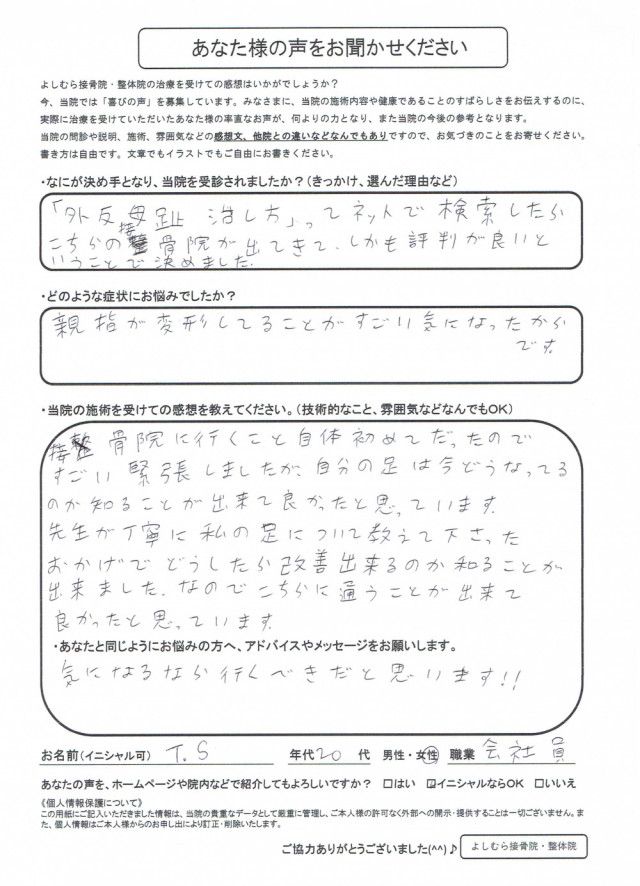 あなた様の声をお聞かせください
よしむら接骨院・整体院の治療を受けての感想はいかがでしょうか？
今、当院では「喜びの声」を募集しています。みなさまに、当院の施術内容や健康であることのすばらしさをお伝えするのに、
実際に治療を受けていただいたあなた様の率直なお声が、何よりの力となり、また当院の今後の参考となります。
当院の問診や説明、施術、雰囲気などの感想文、他院との違いなどなんでもありですので、お気づきのことをお寄せください。
書き方は自由です。文章でもイラストでもご自由にお書きください。
・なにが決め手となり、当院を受診されましたか？（きっかけ、選んだ理由など）
「外反母趾 治し方」ってネットで検索したら
こちらの接骨院が出てきて、しかも評判が良いと
いうことで決めました。
・どのような症状にお悩みでしたか？
親指が変形してることがすごい気になったから
です。
・当院の施術を受けての感想を教えてください。（技術的なこと、雰囲気などなんでもOK）
接骨院に行くこと自体初めてだったので
すごい緊張しましたが、自分の足は今どうなってる
のか知ることが出来て良かったと思っています。
先生が丁寧に私の足について教えて下さった
おかげでどうしたら改善出来るのか知ることが
出来ました。なのでこちらに通うことが出来て
良かったと思っています。
・あなたと同じようにお悩みの方へ、アドバイスやメッセージをお願いします。
気になるなら行くべきだと思います!!
お名前（イニシャル可） T.S 年代 20 代 男性・女性 職業 会社員
あなたの声を、ホームページや院内などで紹介してもよろしいですか？ □はい ☑イニシャルならOK □いいえ
《個人情報保護について》
この用紙にご記入いただきました情報は、当院の貴重なデータとして厳重に管理し、ご本人様の許可なく外部への開示・提供することは一切ございません。ま
た、個人情報はご本人様からのお申し出により訂正・削除いたします。
ご協力ありがとうございました(^^)♪ よしむら接骨院・整体院